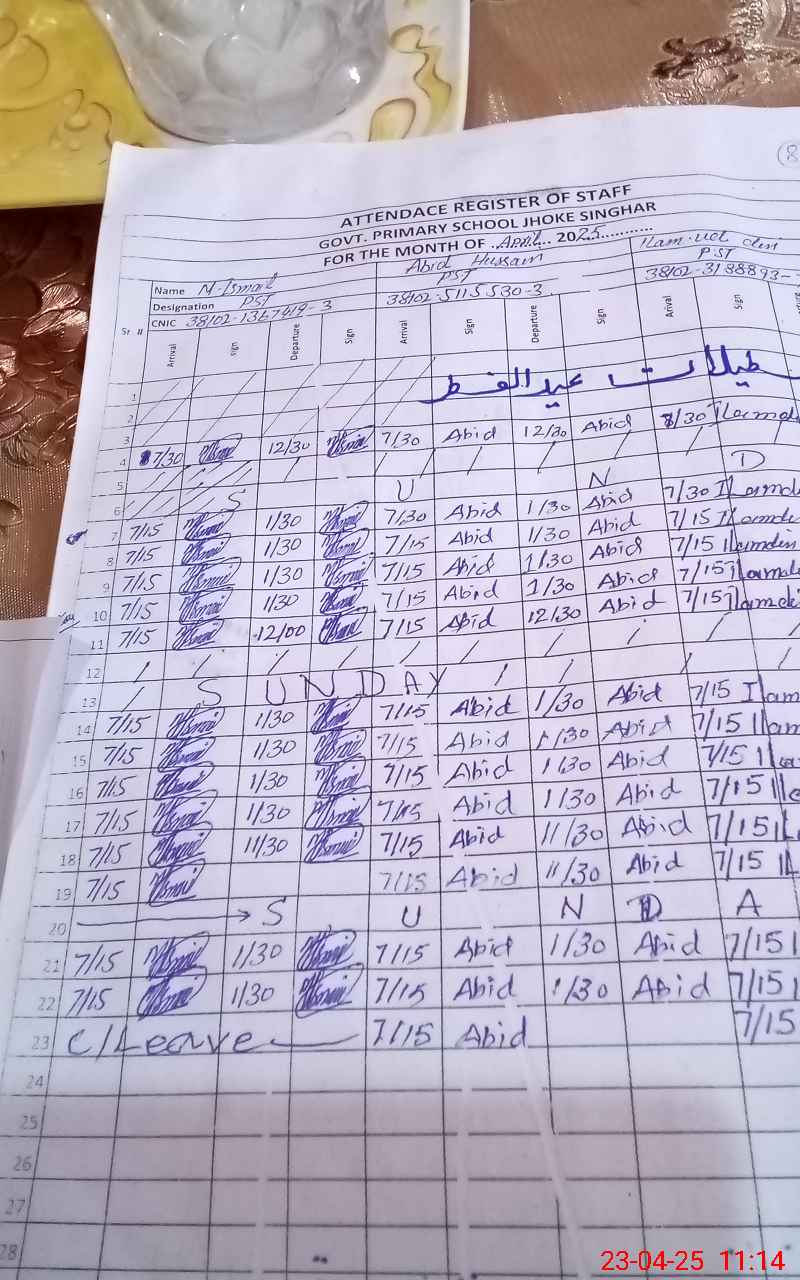 (8
ATTENDACE REGISTER OF STAFF
GOVT. PRIMARY SCHOOL JHOKE SINGHAR
FOR THE MONTH OF ..April... 2025............
Name M-Ismail Abid Hussain
Designation PST PST PST
CNIC 38102-1367419-3 38102-5115530-3 38102-3188893-
Sr # Arrival sign Departure Sign Arrival Sign Departure Sign Arival Sign
1
تعطیلات عید الفطر
2
3
4 7/30 12/30 7/30 Abid 12/30 Abid 7/30
5
6 S U N D
7 7/15 1/30 7/30 Abid 1/30 Abid 7/30
8 7/15 1/30 7/15 Abid 1/30 Abid 7/15
9 7/15 1/30 7/15 Abid 1/30 Abid 7/15
10 7/15 1/30 7/15 Abid 1/30 Abid 7/15
11 7/15 12/00 7/15 Abid 12/30 Abid 7/15
12
13 S U N D A Y
14 7/15 1/30 7/15 Abid 1/30 Abid 7/15
15 7/15 1/30 7/15 Abid 1/30 Abid 7/15
16 7/15 1/30 7/15 Abid 1/30 Abid 7/15
17 7/15 1/30 7/15 Abid 1/30 Abid 7/15
18 7/15 11/30 7/15 Abid 11/30 Abid 7/15
19 7/15 7/15 Abid 11/30 Abid 7/15
20 S U N D A
21 7/15 1/30 7/15 Abid 1/30 Abid 7/15
22 7/15 1/30 7/15 Abid 1/30 Abid 7/15
23 C/Leave 7/15 Abid 7/15
24
25
26
27
28
23-04-25 11:14